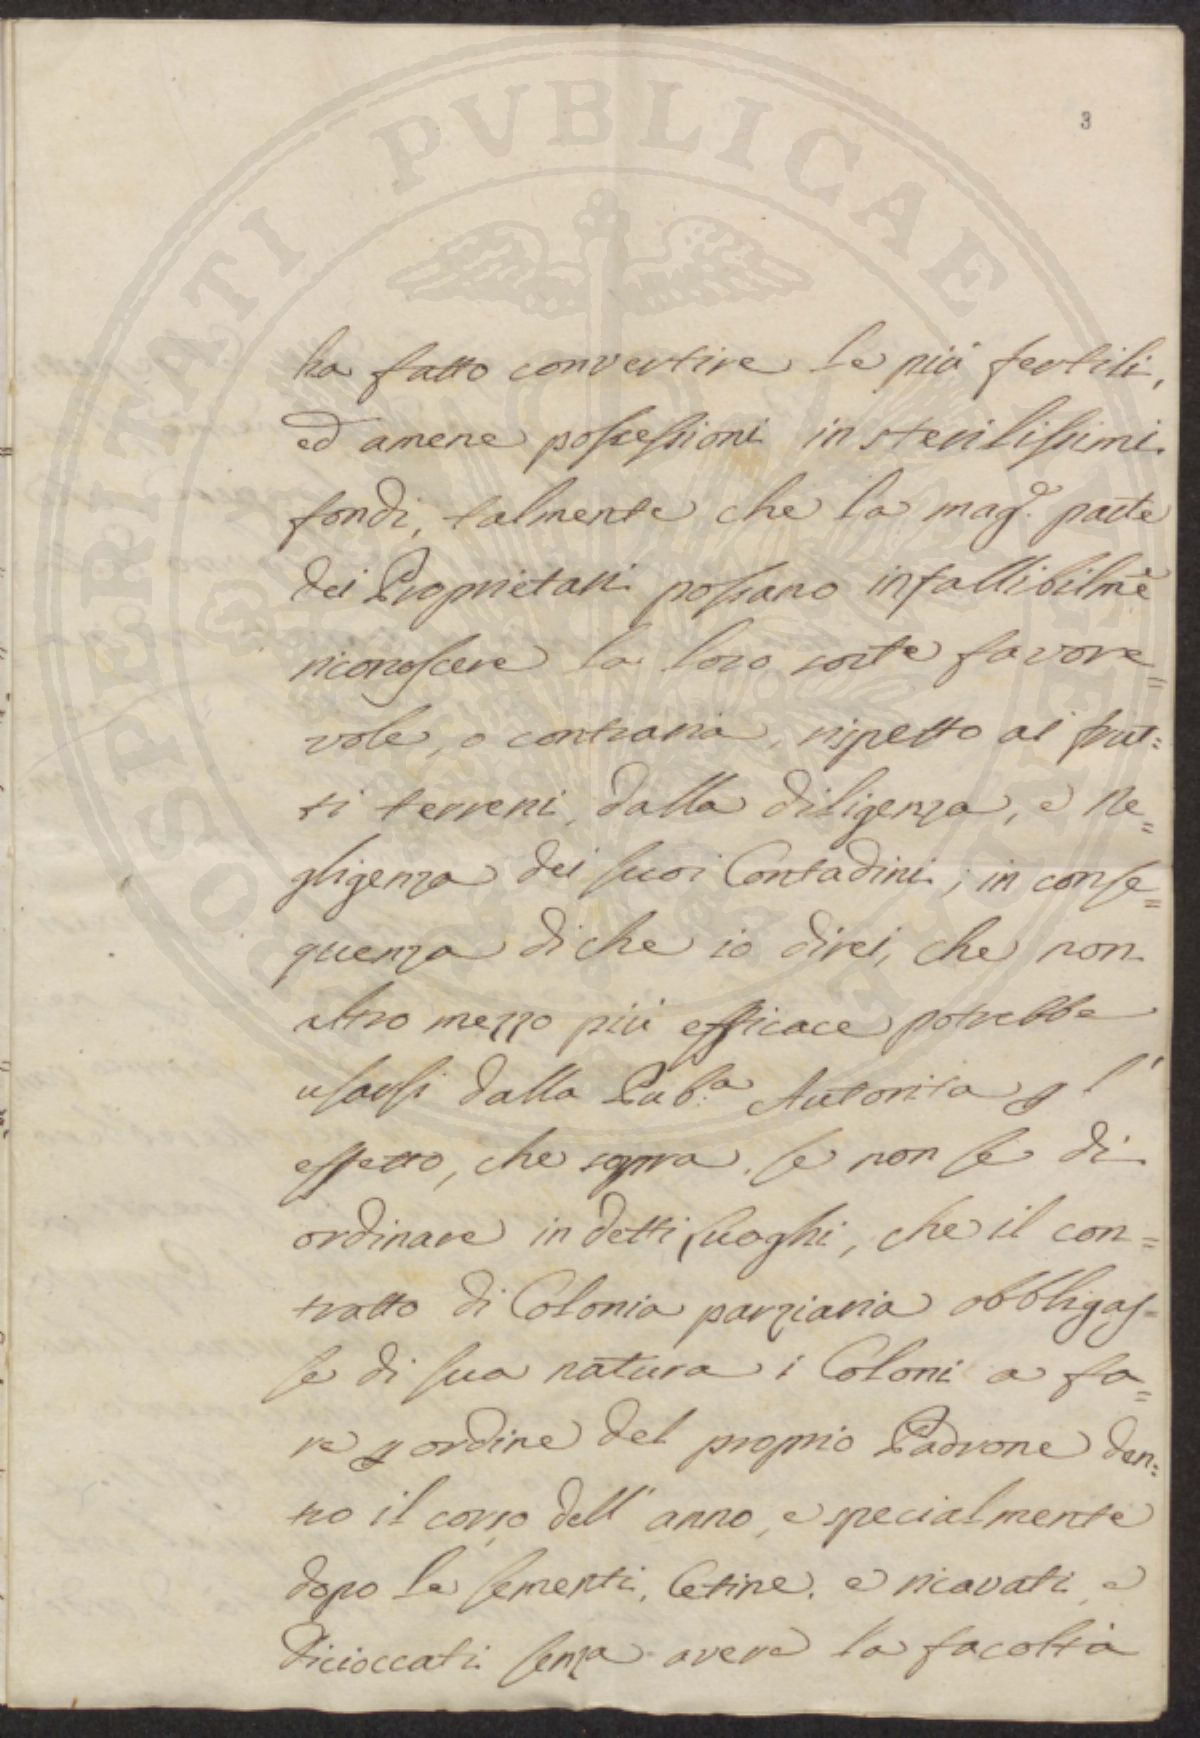 PROSPERITATI PUBLICAE AUGENDAE
3
ha fatto convertire le più fertili,
ed amene possessioni in sterilissimi
fondi, talmente che la mag.e parte
dei Proprietari possano infallibilmẽ
riconoscere la loro sorte favore=
vole, o contraria, rispetto ai frut=
ti terreni, dalla diligenza, e Ne=
gligenza dei suoi Contadini; in conse=
quenza di che io direi, che non
altro mezzo più efficace potrebbe
usarsi dalla Pub.a Autorità p l'
effetto, che sopra, se non se di
ordinare in detti Luoghi, che il con=
tratto di Colonia parziaria obbligas=
se di sua natura i Coloni a fa=
re p ordine del proprio Padrone den=
tro il corso dell' anno, e specialmente
dopo le sementi, Cetine, e ricavati, e
dicioccati senza avere la facoltà